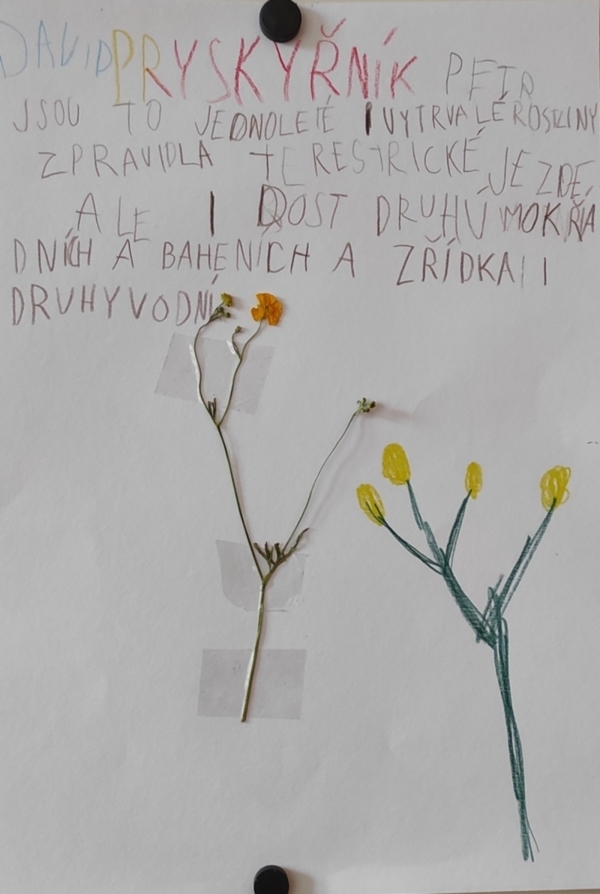 DAVID PRYSKYŘNÍK PETR
JSOU TO JEDNOLETÉ I VYTRVALÉ ROSTLINY
ZPRAVIDLA TERESTRICKÉ JE ZDE
ALE I DOST DRUHŮ MOKŘA
DNÍCH A BAHENÍCH A ZŘÍDKA I I
DRUHY VODNÍ